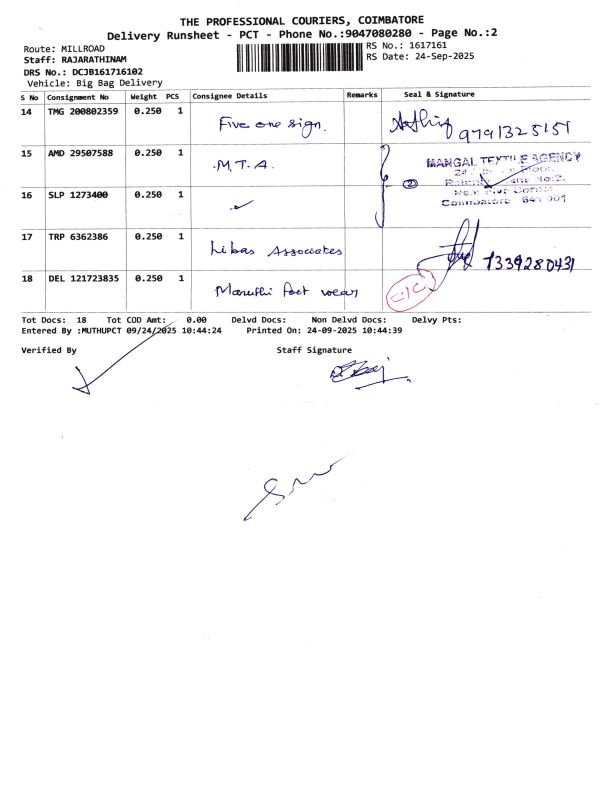 THE PROFESSIONAL COURIERS, COIMBATORE
Delivery Runsheet - PCT - Phone No.:9047080280 - Page No.:2
Route: MILLROAD
RS No.: 1617161
Staff: RAJARATHINAM
RS Date: 24-Sep-2025
DRS No.: DCJB161716102
Vehicle: Big Bag Delivery
S No Consignment No Weight PCS Consignee Details Remarks Seal & Signature
14 TMG 200802359 0.250 1 Five one sign. 9791325151
15 AMD 29507588 0.250 1 M.T.A. MANGAL TEXTILE AGENCY
16 SLP 1273400 0.250 1 2 Coimbatore 641 001
17 TRP 6362386 0.250 1 Libas Associates 7339280431
18 DEL 121723835 0.250 1 Maruthi foot wear
Tot Docs: 18 Tot COD Amt: 0.00 Delvd Docs: Non Delvd Docs: Delvy Pts:
Entered By :MUTHUPCT 09/24/2025 10:44:24 Printed On: 24-09-2025 10:44:39
Verified By Staff Signature